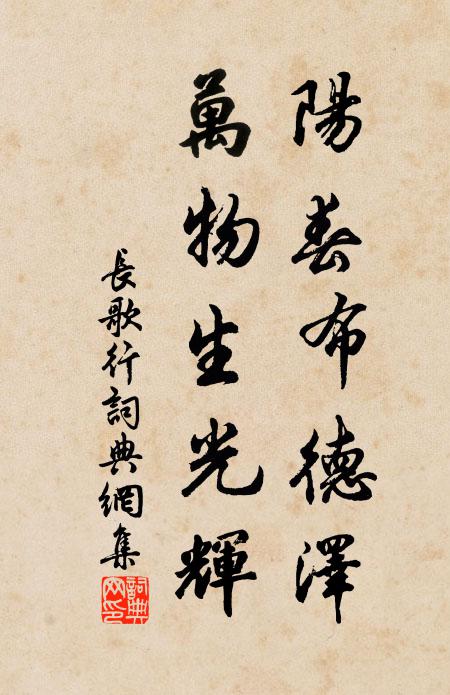 陽春布德澤
萬物生光輝
長歌行詞典網集
詞典
网印